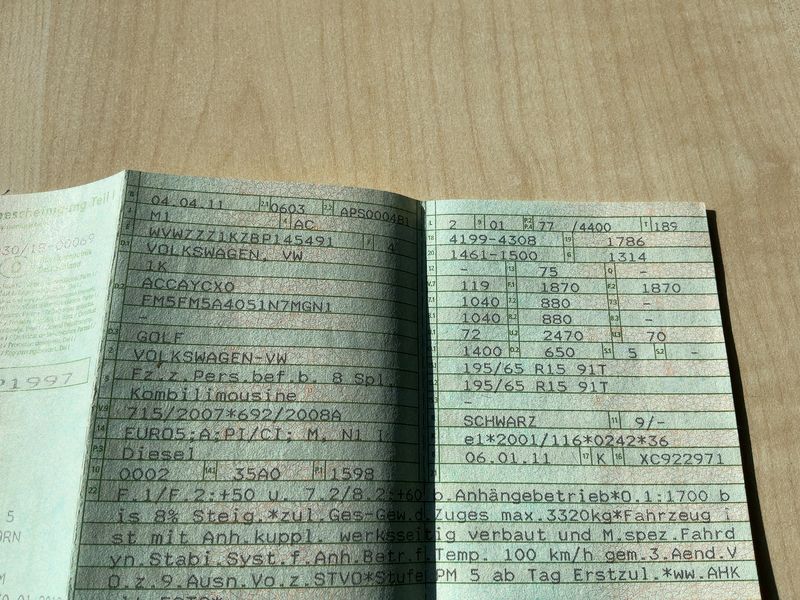 04.04.11 0603 APS000481
M1 AC
WVWZZZ1KZBP145491 4
VOLKSWAGEN, VW
1K
ACCAYCX0
FM5FM5A4051N7MGN1
-
GOLF
VOLKSWAGEN-VW
Fz.z.Pers.bef.b. 8 Spl.
Kombilimousine
715/2007*692/2008A
EURO5;A;PI/CI; M, N1 I
Diesel
10 0002 14.1 35A0 P.1 1598
L 2 9 01 77 /4400 T 189
18 4199-4308 19 1786
20 1461-1500 G 1314
12 - 13 75 Q -
V.7 119 F.1 1870 F.2 1870
7.1 1040 7.2 880 7.3 -
8.1 1040 8.2 880 8.3 -
U.1 72 U.2 2470 U.3 70
O.1 1400 O.2 650 S.1 5 S.2 -
195/65 R15 91T
195/65 R15 91T
-
SCHWARZ 11 9/-
e1*2001/116*0242*36
06.01.11 17 K 16 XC922971
22 F.1/F.2:+50 u. 7.2/8.2:+60 b.Anhängebetrieb*O.1:1700 b
is 8% Steig.*zul.Ges-Gew.d.Zuges max.3320kg*Fahrzeug i
st mit Anh.kuppl. werksseitig verbaut und M.spez.Fahrd
yn.Stabi.Syst.f.Anh.Betr.f.Temp. 100 km/h gem.3.Aend.V
O.z.9.Ausn.Vo.z.STVO*Stufe PM 5 ab Tag Erstzul.*ww.AHK
P1997
5